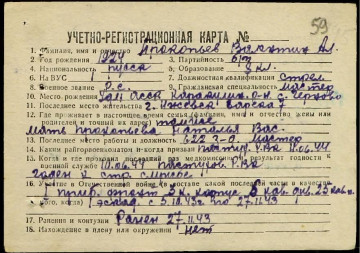 59
УЧЕТНО-РЕГИСТРАЦИОННАЯ КАРТА №
1. Фамилия, имя и отчество Прокопьев Валентин Ал.
2. Год рождения 1924 3. Партийность б/п
4. Национальность русск 5. Образование 8 кл.
6. На ВУС 1 7. Должностная квалификация стрел
8. Военное звание р.с. 9. Гражданская специальность мастер
10. Место рождения с. Черново
11. Последнее место жительства г. Ижевск
12. Где проживает в настоящее время семья (фамилия, имя и отчество жены или
родителей и точный их адрес) там же
мать Прокопьева Наталья Вас.
13. Последнее место работы и должность 622 з-д мастер
14. Каким райвоенкоматом и когда призван РВК 11.06.44
15. Когда и где проходил последний раз медкомиссию и результат годности к
военной службе 10.06.44 РВК
годен к стр. службе
16. Участие в Отечественной войне на составе какой последней части и качестве
3 к. корпус 6 кав. див. 25 кав. п.
эскад. с 5.10.43г. по 27.11.43
17. Ранения и контузии Ранен 27.11.43
18. Нахождение в плену или окружении нет